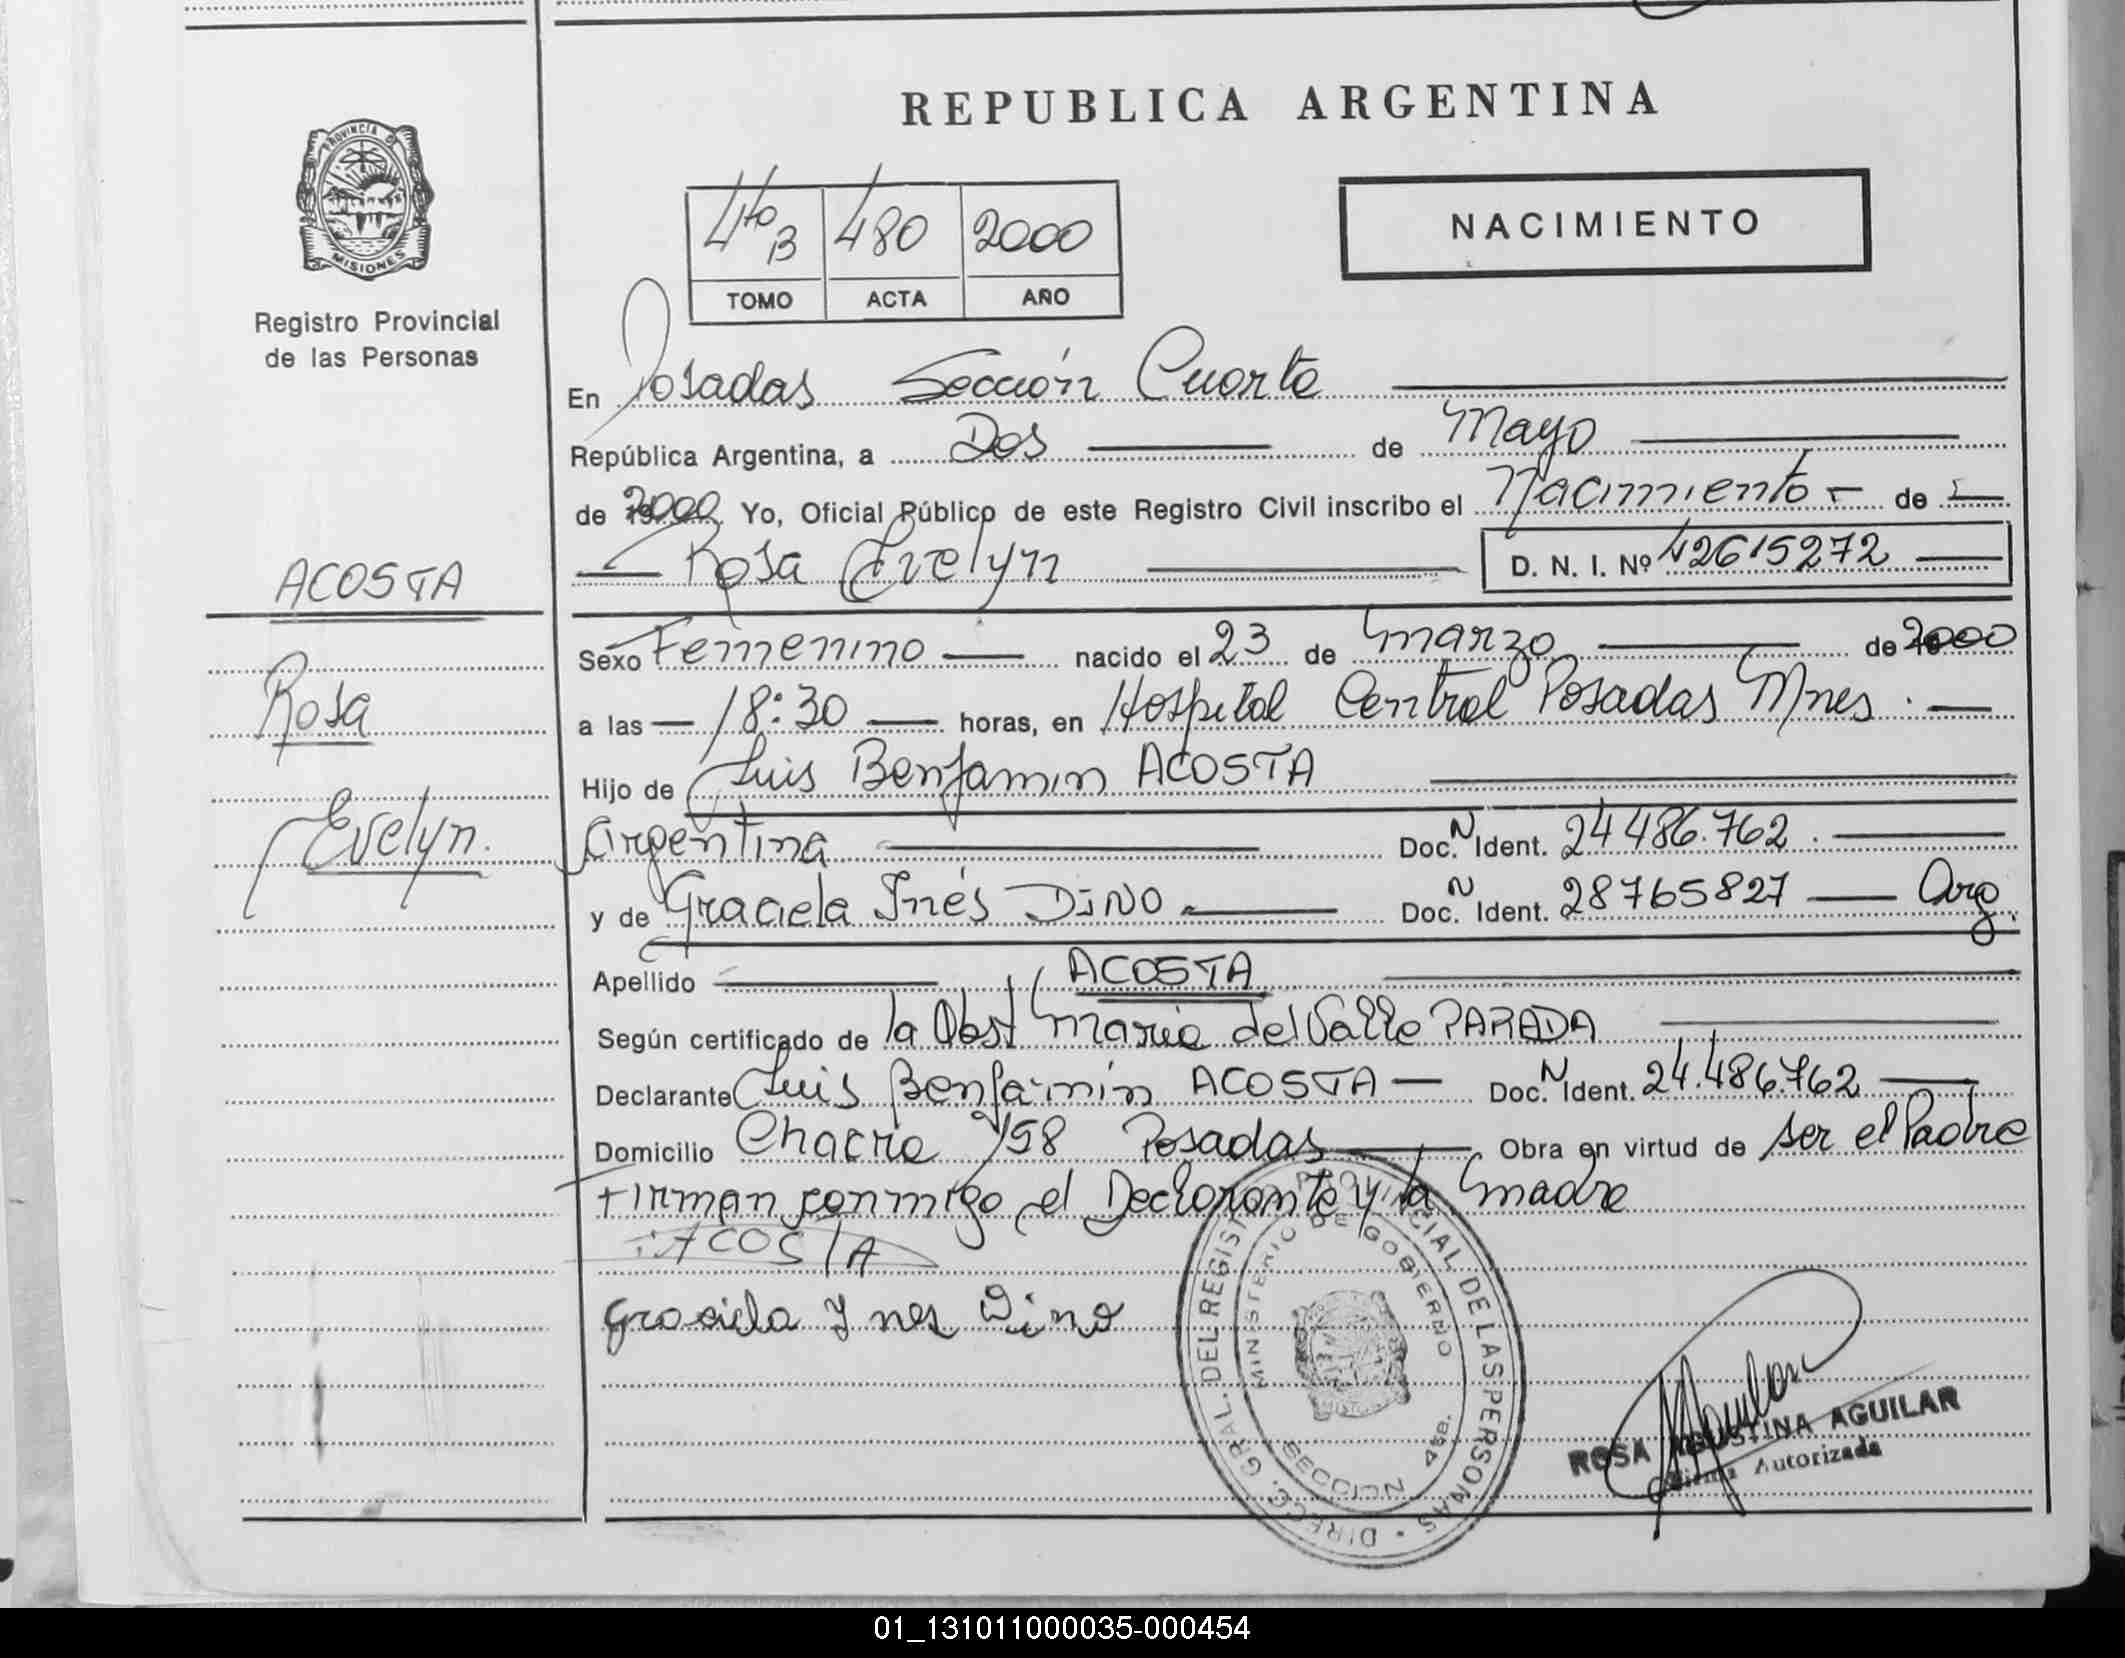 REPUBLICA ARGENTINA
PROVINCIA DE
MISIONES
Registro Provincial
de las Personas
4to B 480 2000
TOMO ACTA AÑO
NACIMIENTO
En Posadas Sección Cuarta
República Argentina, a Dos de Mayo
de 2000 Yo, Oficial Público de este Registro Civil inscribo el Nacimiento de
Rosa Evelyn D. N. I. Nº 42615272
ACOSTA
Rosa
Evelyn.
Sexo Femenino nacido el 23 de Marzo de 2000
a las 18:30 horas, en Hospital Central Posadas Mnes.
Hijo de Luis Benjamin ACOSTA
Argentina Doc. N Ident. 24486.762.
y de Graciela Inés DiNO Doc. N Ident. 28765827 Arg.
Apellido ACOSTA
Según certificado de la Obst Maria del Valle PARADA
Declarante Luis Benjamin ACOSTA Doc. N Ident. 24.486.762
Domicilio Chacra 158 Posadas Obra en virtud de ser el Padre
Firman conmigo el Declarante y la Madre
ACOSTA
Graciela Ynes Dino
DIRECC. GRAL. DEL REGISTRO PROVINCIAL DE LAS PERSONAS
MINISTERIO DE GOBIERNO
SECCION 4ta B.
ROSA AGUSTINA AGUILAR
Firma Autorizada
01_131011000035-000454